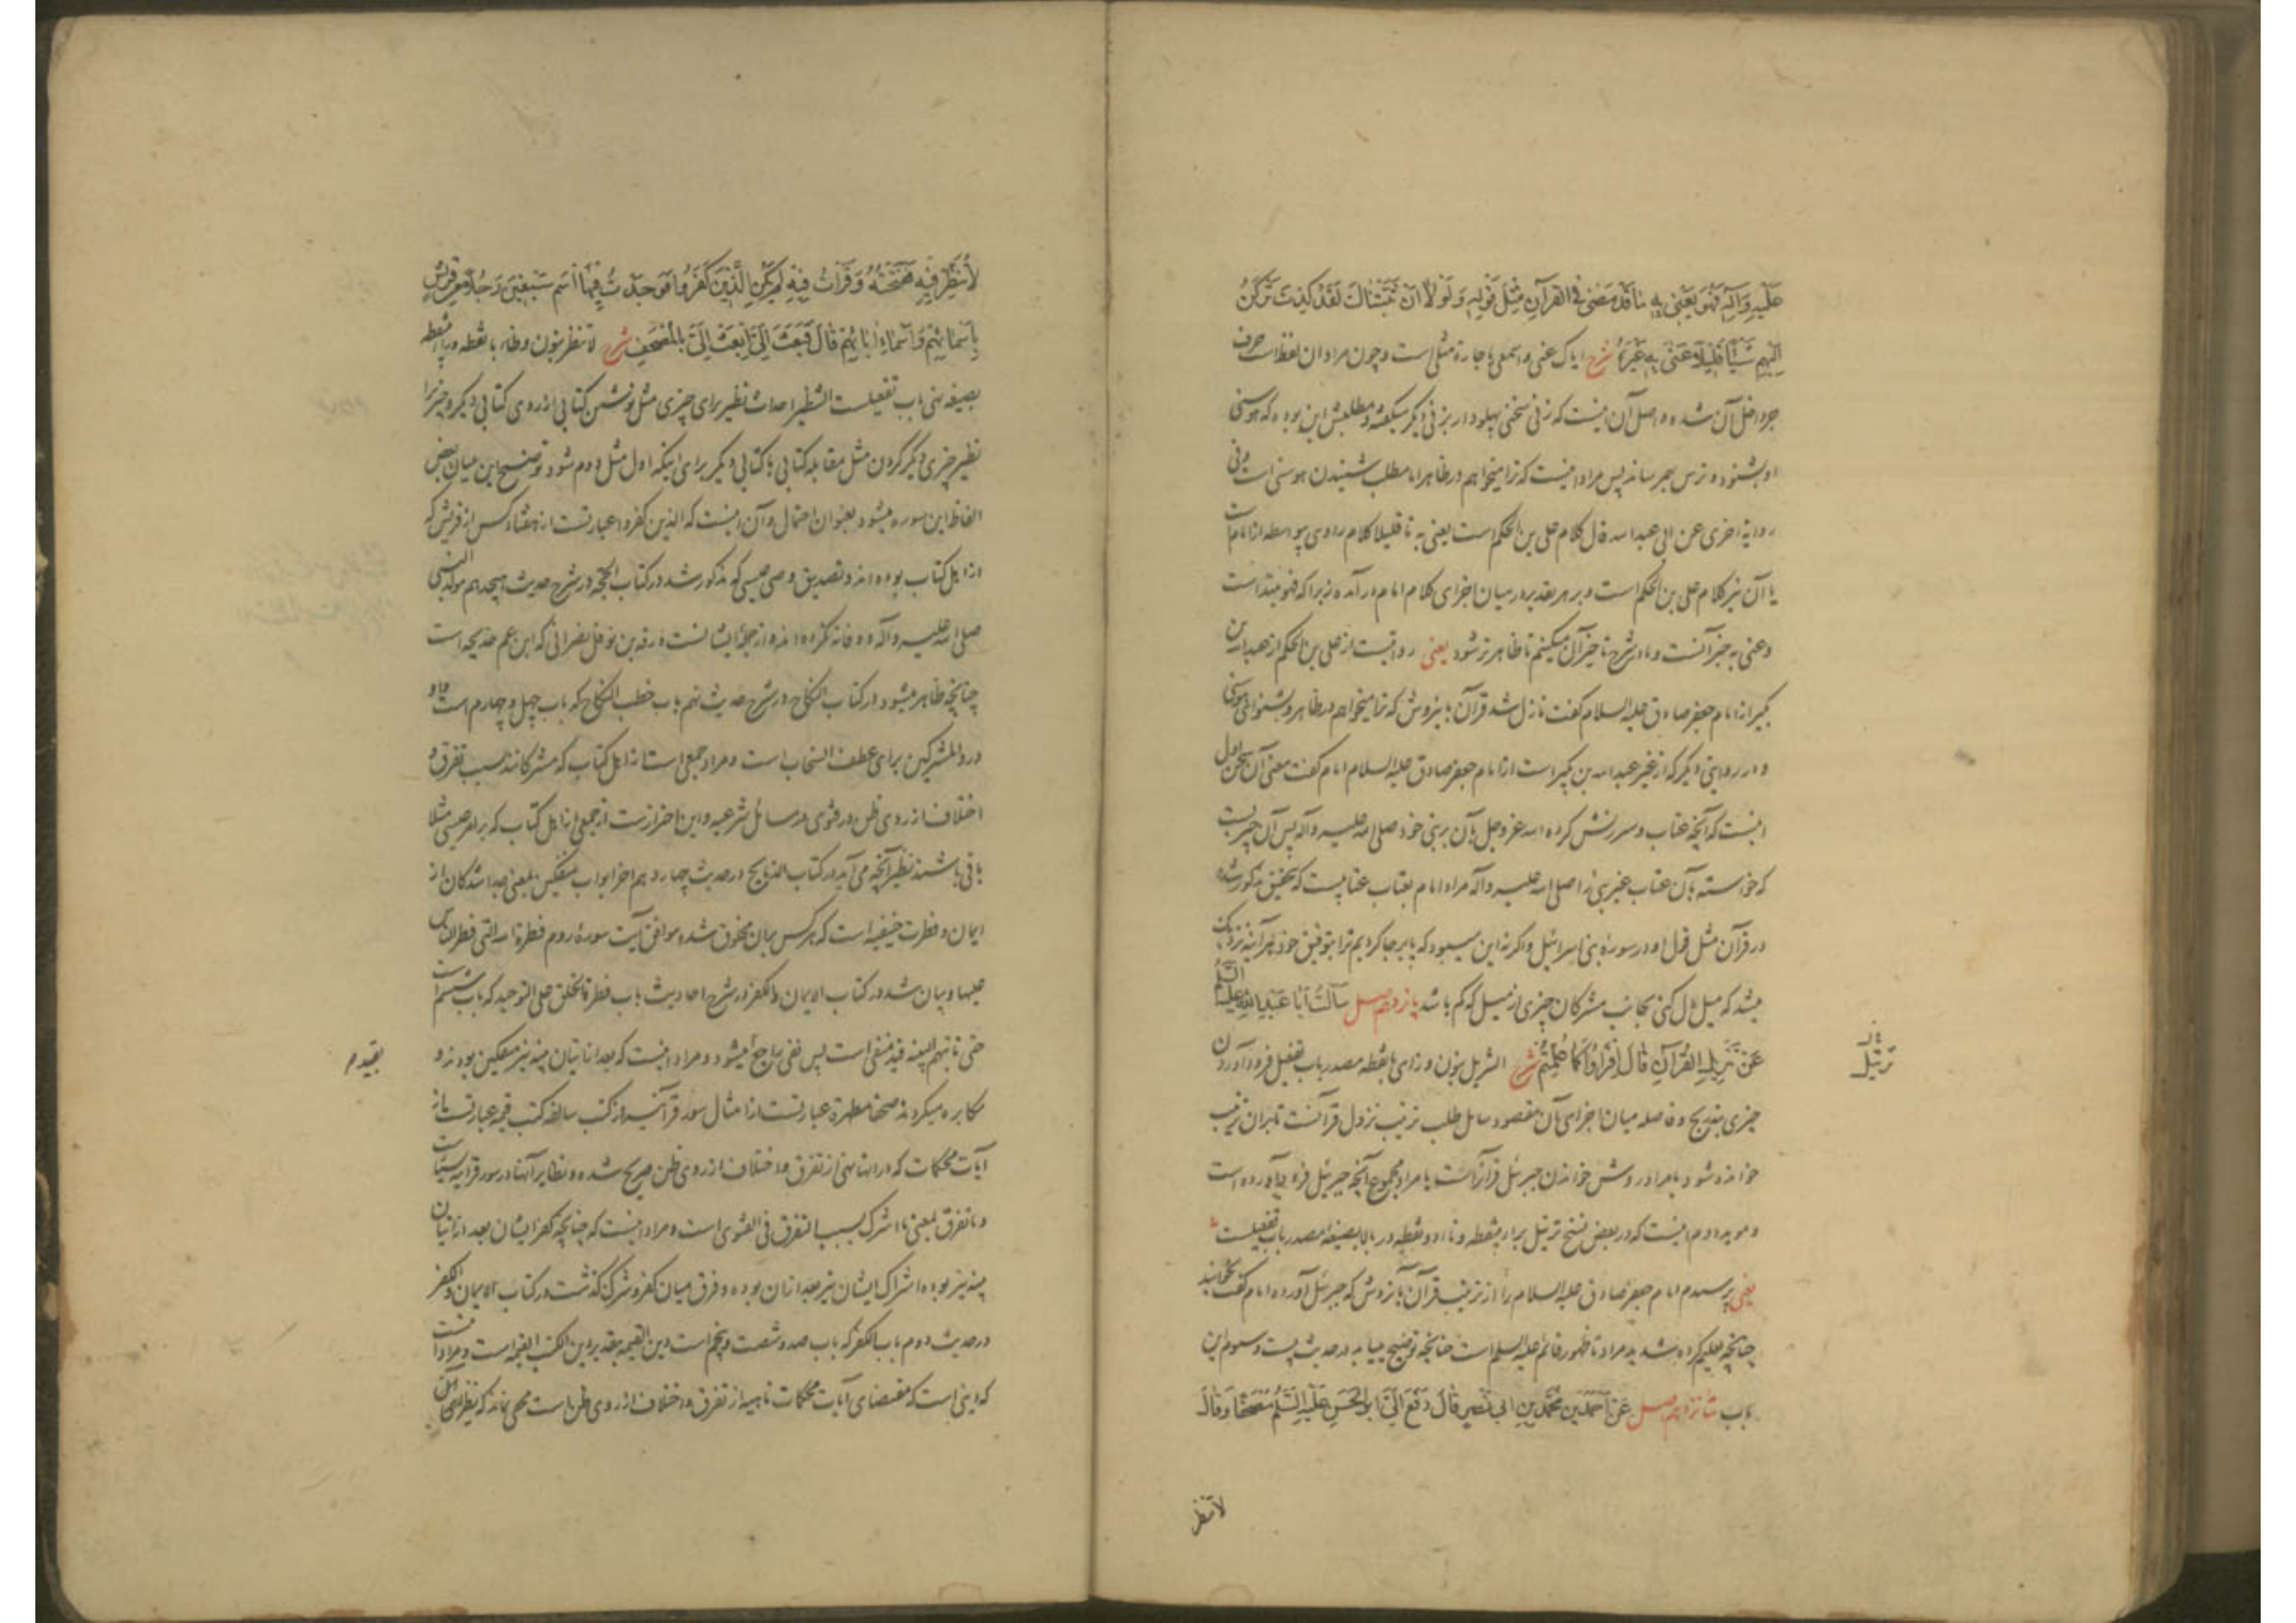 عَلَيْهِ وَآلِهِ فَهُوَ يَعْنِي بِهِ مَا قَدْ مَضَى فِي الْقُرْآنِ مِثْلَ قَوْلِهِ وَلَوْلَا أَنْ ثَبَّتْنَاكَ لَقَدْ كِدْتَ تَرْكَنُ
إِلَيْهِمْ شَيْئًا قَلِيلًا عَنَى بِهِ غَيْرَهُ شرح ایاک عنی و اسمعی یا جاره مثلی است و چون مراد ان لفظ است حرف
جر داخل آن شده و اصل آن اینست که زنی سخنی پهلودار بزنی دیگر میگفته و مطلبش این بوده که هوسنی
او بشنود و ترس بهم رساند پس مراد اینست که ترا میخواهم در ظاهر اما مطلب شنیدن هوسنی است و فی
روایة اخری عن ابی عبد الله قال کلام علی بن الحکم است یعنی به تا قلیلا کلام راوی بیواسطه از امام است
یا آن نیز کلام علی بن الحکم است و بر هر تقدیر در میان اجزای کلام امام در آمده زیرا که فهو مبتداست
و عنی به خبر آنست و ما شرح تا خبر آن میکنیم تا ظاهر تر شود یعنی روایتست از علی بن الحکم از عبد الله بن
بکیر از امام جعفر صادق علیه السلام گفت نازل شد قرآن باینروش که ترا میخواهم در ظاهر و بشنو ای هوسنی
و در روایتی دیگر که از غیر عبد الله بن بکیر است از امام جعفر صادق علیه السلام امام گفت معنی آن سخن اول
اینست که آنچه عتاب و سرزنش کرده الله عز و جل بآن بر نبی خود صلی الله علیه و آله پس آن چیزیست
که خواسته بآن عتاب غیر نبی را صلی الله علیه و آله مراد امام بعتاب عتابیست که بتحقیق مذکور شده
در قرآن مثل قول او در سوره بنی اسرائیل و اگر نه این میبود که پا بر جا کردیم ترا بتوفیق خود هر آینه نزدیک
میشد که میل دل کنی بجانب مشرکان چیزی از میل که کم باشد پانزدهم اصل سَأَلْتُ أَبَا عَبْدِ اللَّهِ عَلَيْهِ السَّلَمُ
عَنْ تَنْزِيلِ الْقُرْآنِ قَالَ اقْرَأُوا كَمَا عُلِّمْتُمْ شرح التنزیل بنون و زای با نقطه مصدر باب تفعیل فرود آوردن
چیزی بتدریج و فاصله میان اجزای آن مقصود سایل طلب ترتیب نزول قرآنست تا بران ترتیب
خوانده شود یا مراد روش خواندن جبرئیل قرآنراست یا مراد مجموع آنچه جبرئیل فرود آورده است
و موید دوم اینست که در بعض نسخ ترتیل براء بینقطه و تاء دو نقطه در بالا بصیغه مصدر باب تفعیلست
یعنی پرسیدم امام جعفر صادق علیه السلام را از ترتیب قرآن بآنروش که جبرئیل آورده امام گفت بخوانید
چنانچه تعلیم کرده شدید مراد تا ظهور قائم علیه السلم است چنانچه توضیح میابد در حدیث بیست و سوم این
باب شانزدهم اصل عَنْ أَحْمَدَ بْنِ مُحَمَّدِ بْنِ أَبِي نَصْرٍ قَالَ دَفَعَ إِلَيَّ أَبُو الْحَسَنِ عَلَيْهِ السَّلَمُ مُصْحَفًا وَقَالَ
لا تنظر
ترتیل
لَا تَنْظُرْ فِيهِ فَفَتَحْتُهُ وَقَرَأْتُ فِيهِ لَمْ يَكُنِ الَّذِينَ كَفَرُوا فَوَجَدْتُ فِيهَا اسْمَ سَبْعِينَ رَجُلًا مِنْ قُرَيْشٍ
بِأَسْمَائِهِمْ وَأَسْمَاءِ آبَائِهِمْ قَالَ فَبَعَثَ إِلَيَّ ابْعَثْ إِلَيَّ بِالْمُصْحَفِ شرح لا تنظر بنون و ظاء با نقطه و راء بینقطه
بصیغه نهی باب تفعیلست التنظیر احداث نظیر برای چیزی مثل نوشتن کتابی از روی کتابی دیگر و چیزیرا
نظیر چیزی دیگر کردن مثل مقابله کتابی با کتابی دیگر برای اینکه اول مثل دوم شود توضیح این میان بعض
الفاظ این سوره میشود بعنوان احتمال و آن اینست که الذین کفروا عبارتست از هفتاد کس از قریش که
از اهل کتاب بوده اند و تصدیق وصی عیسی که مذکور شد در کتاب الحجه در شرح حدیث هیجدهم مولد النبی
صلی الله علیه و آله و وفا نه نکرده اند و از جمله ایشانست ورقه بن نوفل نصرانی که ابن عم خدیجه است
چنانچه ظاهر میشود در کتاب النکاح در شرح حدیث نهم باب خطب النکاح که باب چهل و چهارم است و واو
در و المشرکین برای عطف انسحاب است و مراد جمعی است از اهل کتاب که مشرکانند بسبب تفرق و
اختلاف از روی ظن در فتوی در مسائل شرعیه و این احترازست از جمعی از اهل کتاب که بر امر عیسی مثلا
باقی باشند نظیر آنچه می آید در کتاب الذبایح در حدیث چهاردهم اخر ابواب منفکین بمعنی جدا شدگان از
ایمان و فطرت حنیفیه است که هر کس بران مخلوق شده موافق آیت سوره روم فطرة الله التی فطر الناس
علیها و بیان شد در کتاب الایمان و الکفر در شرح احادیث باب فطرة الخلق علی التوحید که باب ششم است
حتی تاتیهم البینه قید منفی است پس نفی راجع میشود و مراد اینست که بعد از اتیان بینه نیز منفکین بودند و
مکابره میکردند صحفا مطهرة عبارتست از امثال سور قرآنیه از کتب سالفه کتب قیمه عبارتست از
آیات محکمات که در انها نهی از تفرق و اختلاف از روی ظن صریح شده و نظایر آنها در سور قرانیه بسیار است
و ما تفرق بمعنی ما اشرک بسبب التفرق فی الفتوی است و مراد اینست که چنانچه کفر ایشان بعد از اتیان
بینه نیز بوده اشراک ایشان نیز بعد از ان بوده و فرق میان کفر و شرک گذشت در کتاب الایمان و الکفر
در حدیث دوم باب الکفر که باب صد و شصت و پنجم است دین القیمه بتقدیر دین الکتب القیمه است و مراد اینست
که دینی است که مقتضای آیات محکمات ناهیه از تفرق و اختلاف از روی ظن است مخفی نماند که نظیر